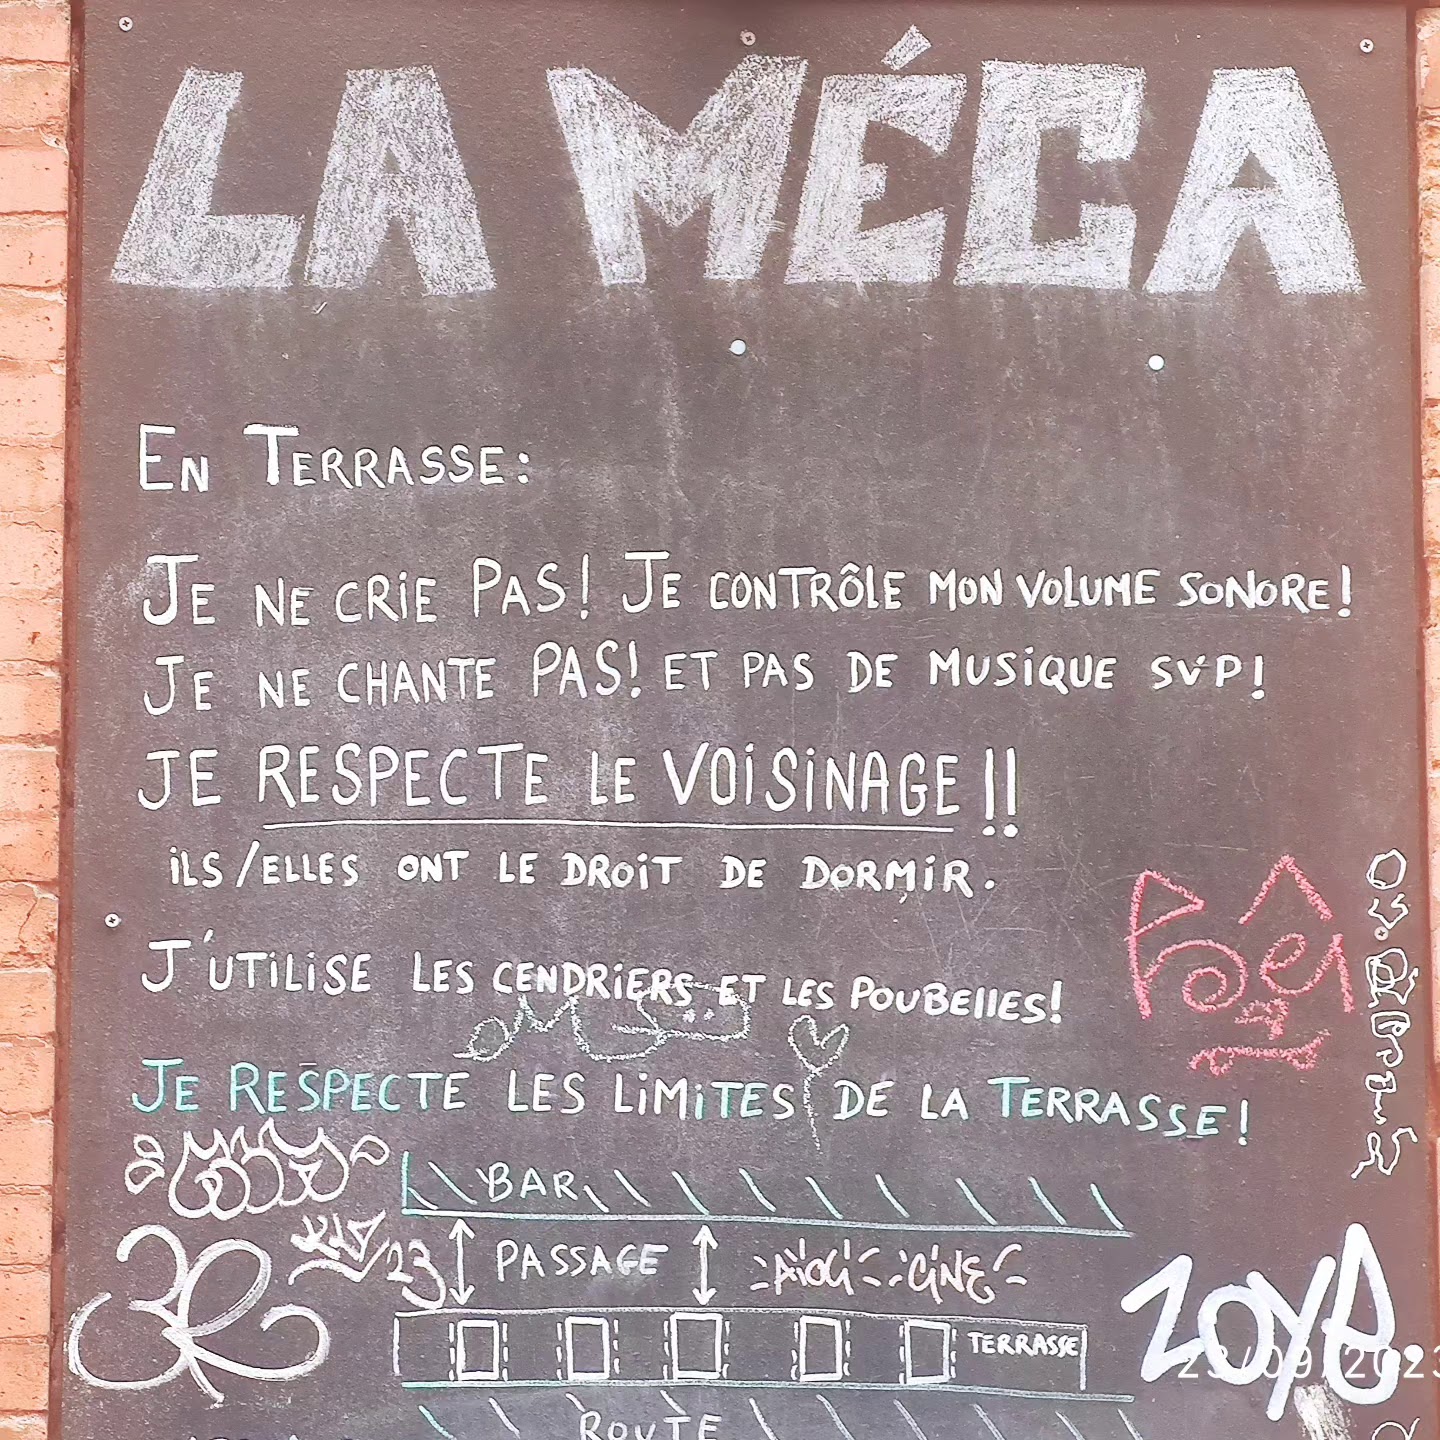 LA MÉCA
EN TERRASSE:
JE NE CRIE PAS! JE CONTRÔLE MON VOLUME SONORE!
JE NE CHANTE PAS! ET PAS DE MUSIQUE SVP!
JE RESPECTE LE VOISINAGE!!
ILS/ELLES ONT LE DROIT DE DORMIR.
J'UTILISE LES CENDRIERS ET LES POUBELLES!
JE RESPECTE LES LIMITES DE LA TERRASSE!
BAR
23 PASSAGE
TERRASSE
ZOYA
23/09/2023
ROUTE